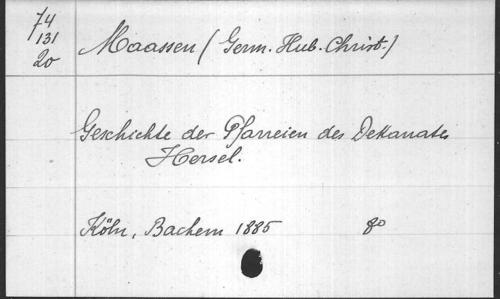 74
131
20
Maassen (Germ. Hub. Christ.)
Geschichte der Pfarreien des Dekanates
Hersel.
Köln, Bachem 1885 8°